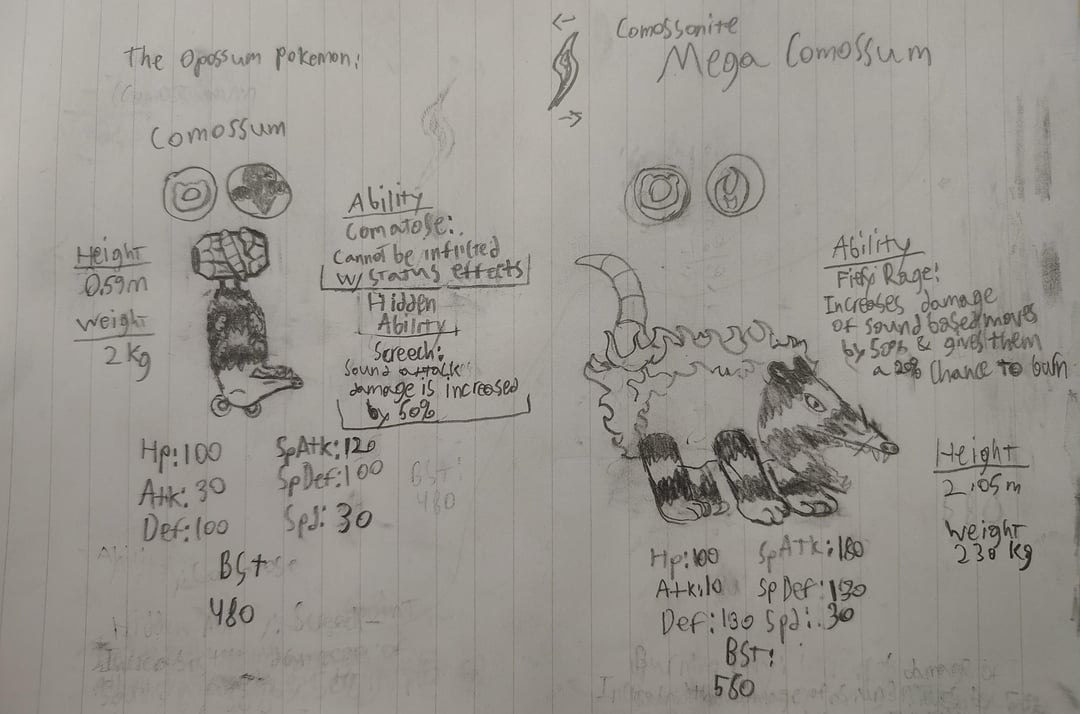 The Opossum Pokemon:
Comossum
Height
0.59m
Weight
2 Kg
Ability
Comatose:
Cannot be inflicted
w/ status effects
Hidden
Ability
Screech:
Sound attack
damage is increased
by 50%
Hp:100
Atk: 30
Def:100
SpAtk:120
SpDef:100
Spd: 30
BSt:
480
BSt
480
Comossonite
Mega Comossum
Ability
Fiery Rage:
Increases damage
of sound based moves
by 50% & gives them
a 20% Chance to burn
Height
2.05m
Weight
230 Kg
Hp:100
Atk:10
Def:130
SpAtk:180
SpDef:130
Spd: 30
BSt:
560